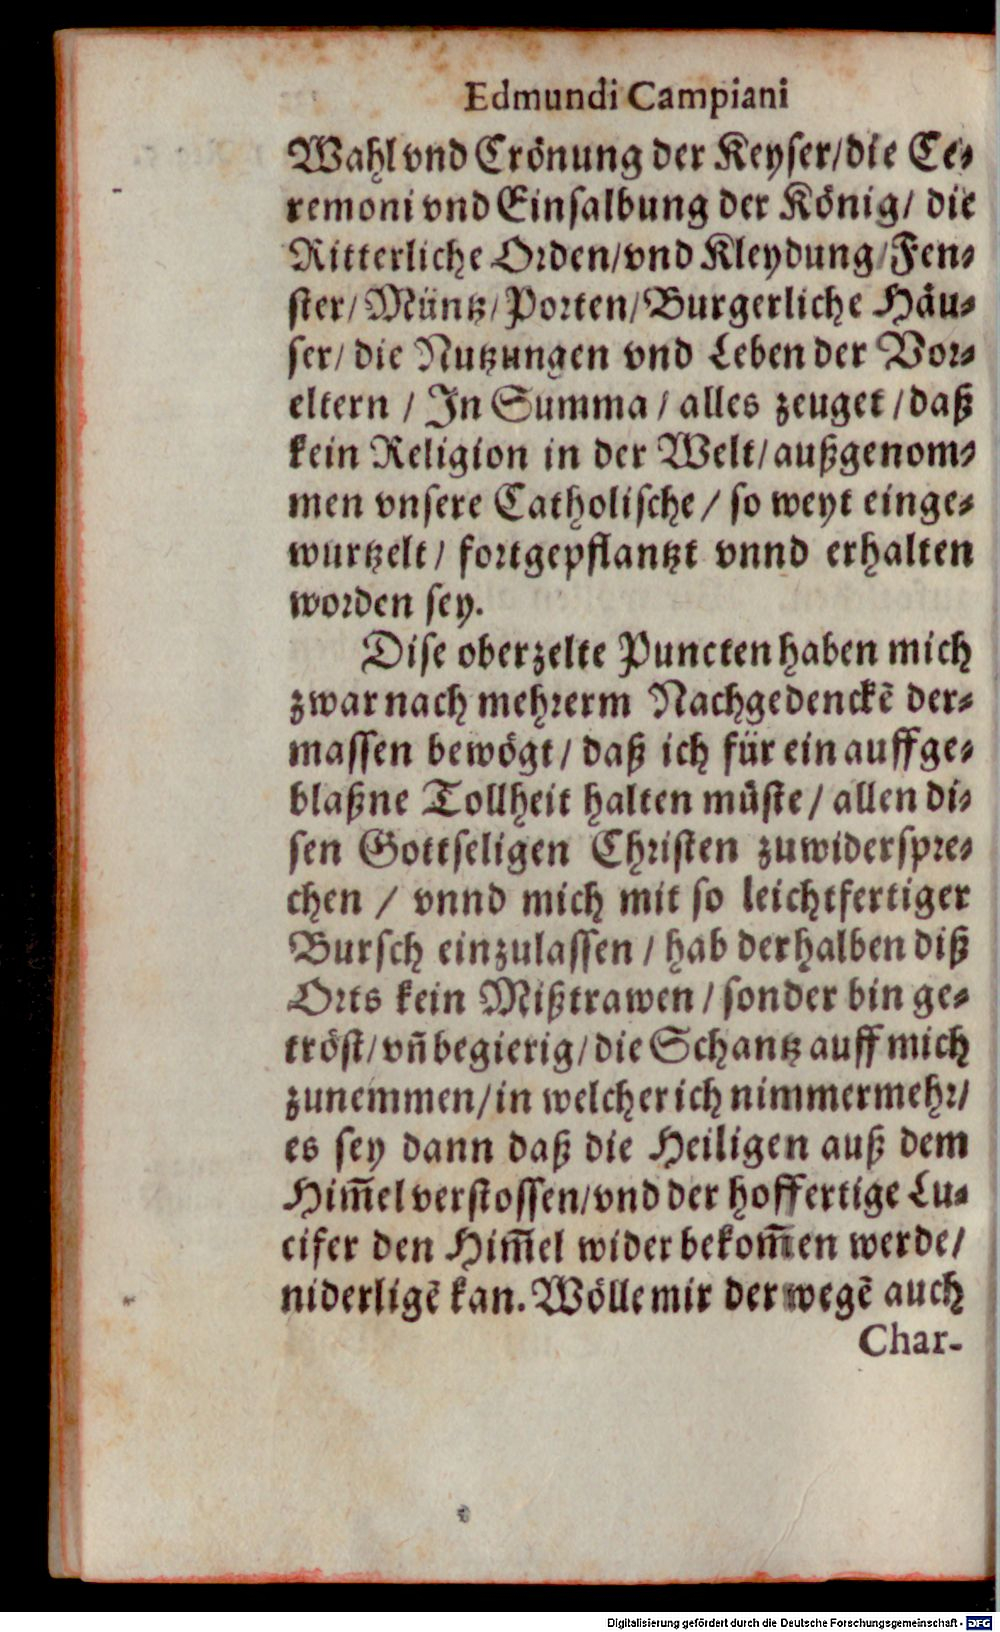 Edmundi Campiani
Wahl vnd Crönung der Keyser/die Ce-
remoni vnd Einsalbung der König/ die
Ritterliche Orden/vnd Kleydung/Fen-
ster/ Müntz/Porten/Burgerliche Häu-
ser/ die Nutzungen vnd Leben der Vor-
eltern / In Summa / alles zeuget / daß
kein Religion in der Welt/ außgenom-
men vnsere Catholische / so weyt einge-
wurtzelt/ fortgepflantzt vnnd erhalten
worden sey.
Dise oberzelte Puncten haben mich
zwar nach mehrerm Nachgedenckẽ der-
massen bewögt/ daß ich für ein auffge-
blaßne Tollheit halten müste/ allen di-
sen Gottseligen Christen zuwiderspre-
chen / vnnd mich mit so leichtfertiger
Bursch einzulassen / hab derhalben diß
Orts kein Mißtrawen / sonder bin ge-
tröst/ vñ begierig/ die Schantz auff mich
zunemmen/in welcher ich nimmermehr/
es sey dann daß die Heiligen auß dem
Him̃el verstossen/vnd der hoffertige Lu-
cifer den Him̃el wider bekom̃en werde/
niderligẽ kan. Wölle mir derwegẽ auch
Char-
Digitalisierung gefördert durch die Deutsche Forschungsgemeinschaft - DFG